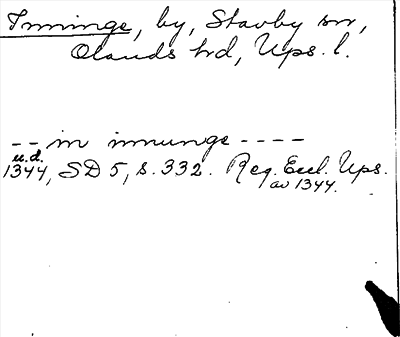 Inninge, by, Stavby sn,
Olands hd, Ups. l.
-- in innunge ----
u.d.
1344, SD 5, s. 332. Reg. Eccl. Ups.
av 1344.